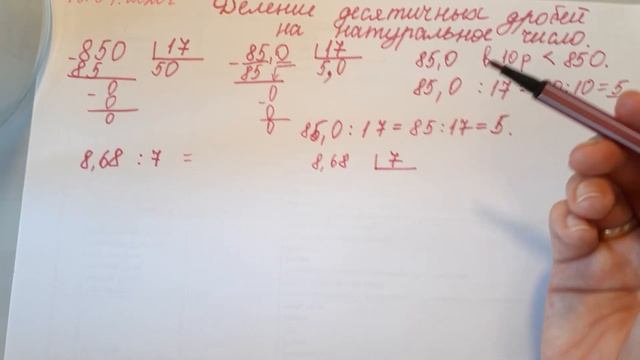 Деление десятичных дробей
на натуральное число
850 17
85 50
0
0
0
85,0 17
85 5,0
0
0
0
85,0 в 10р < 850.
85,0 : 17 = :10 = 5
85,0 : 17 = 85 : 17 = 5.
8,68 : 7 =
8,68 7